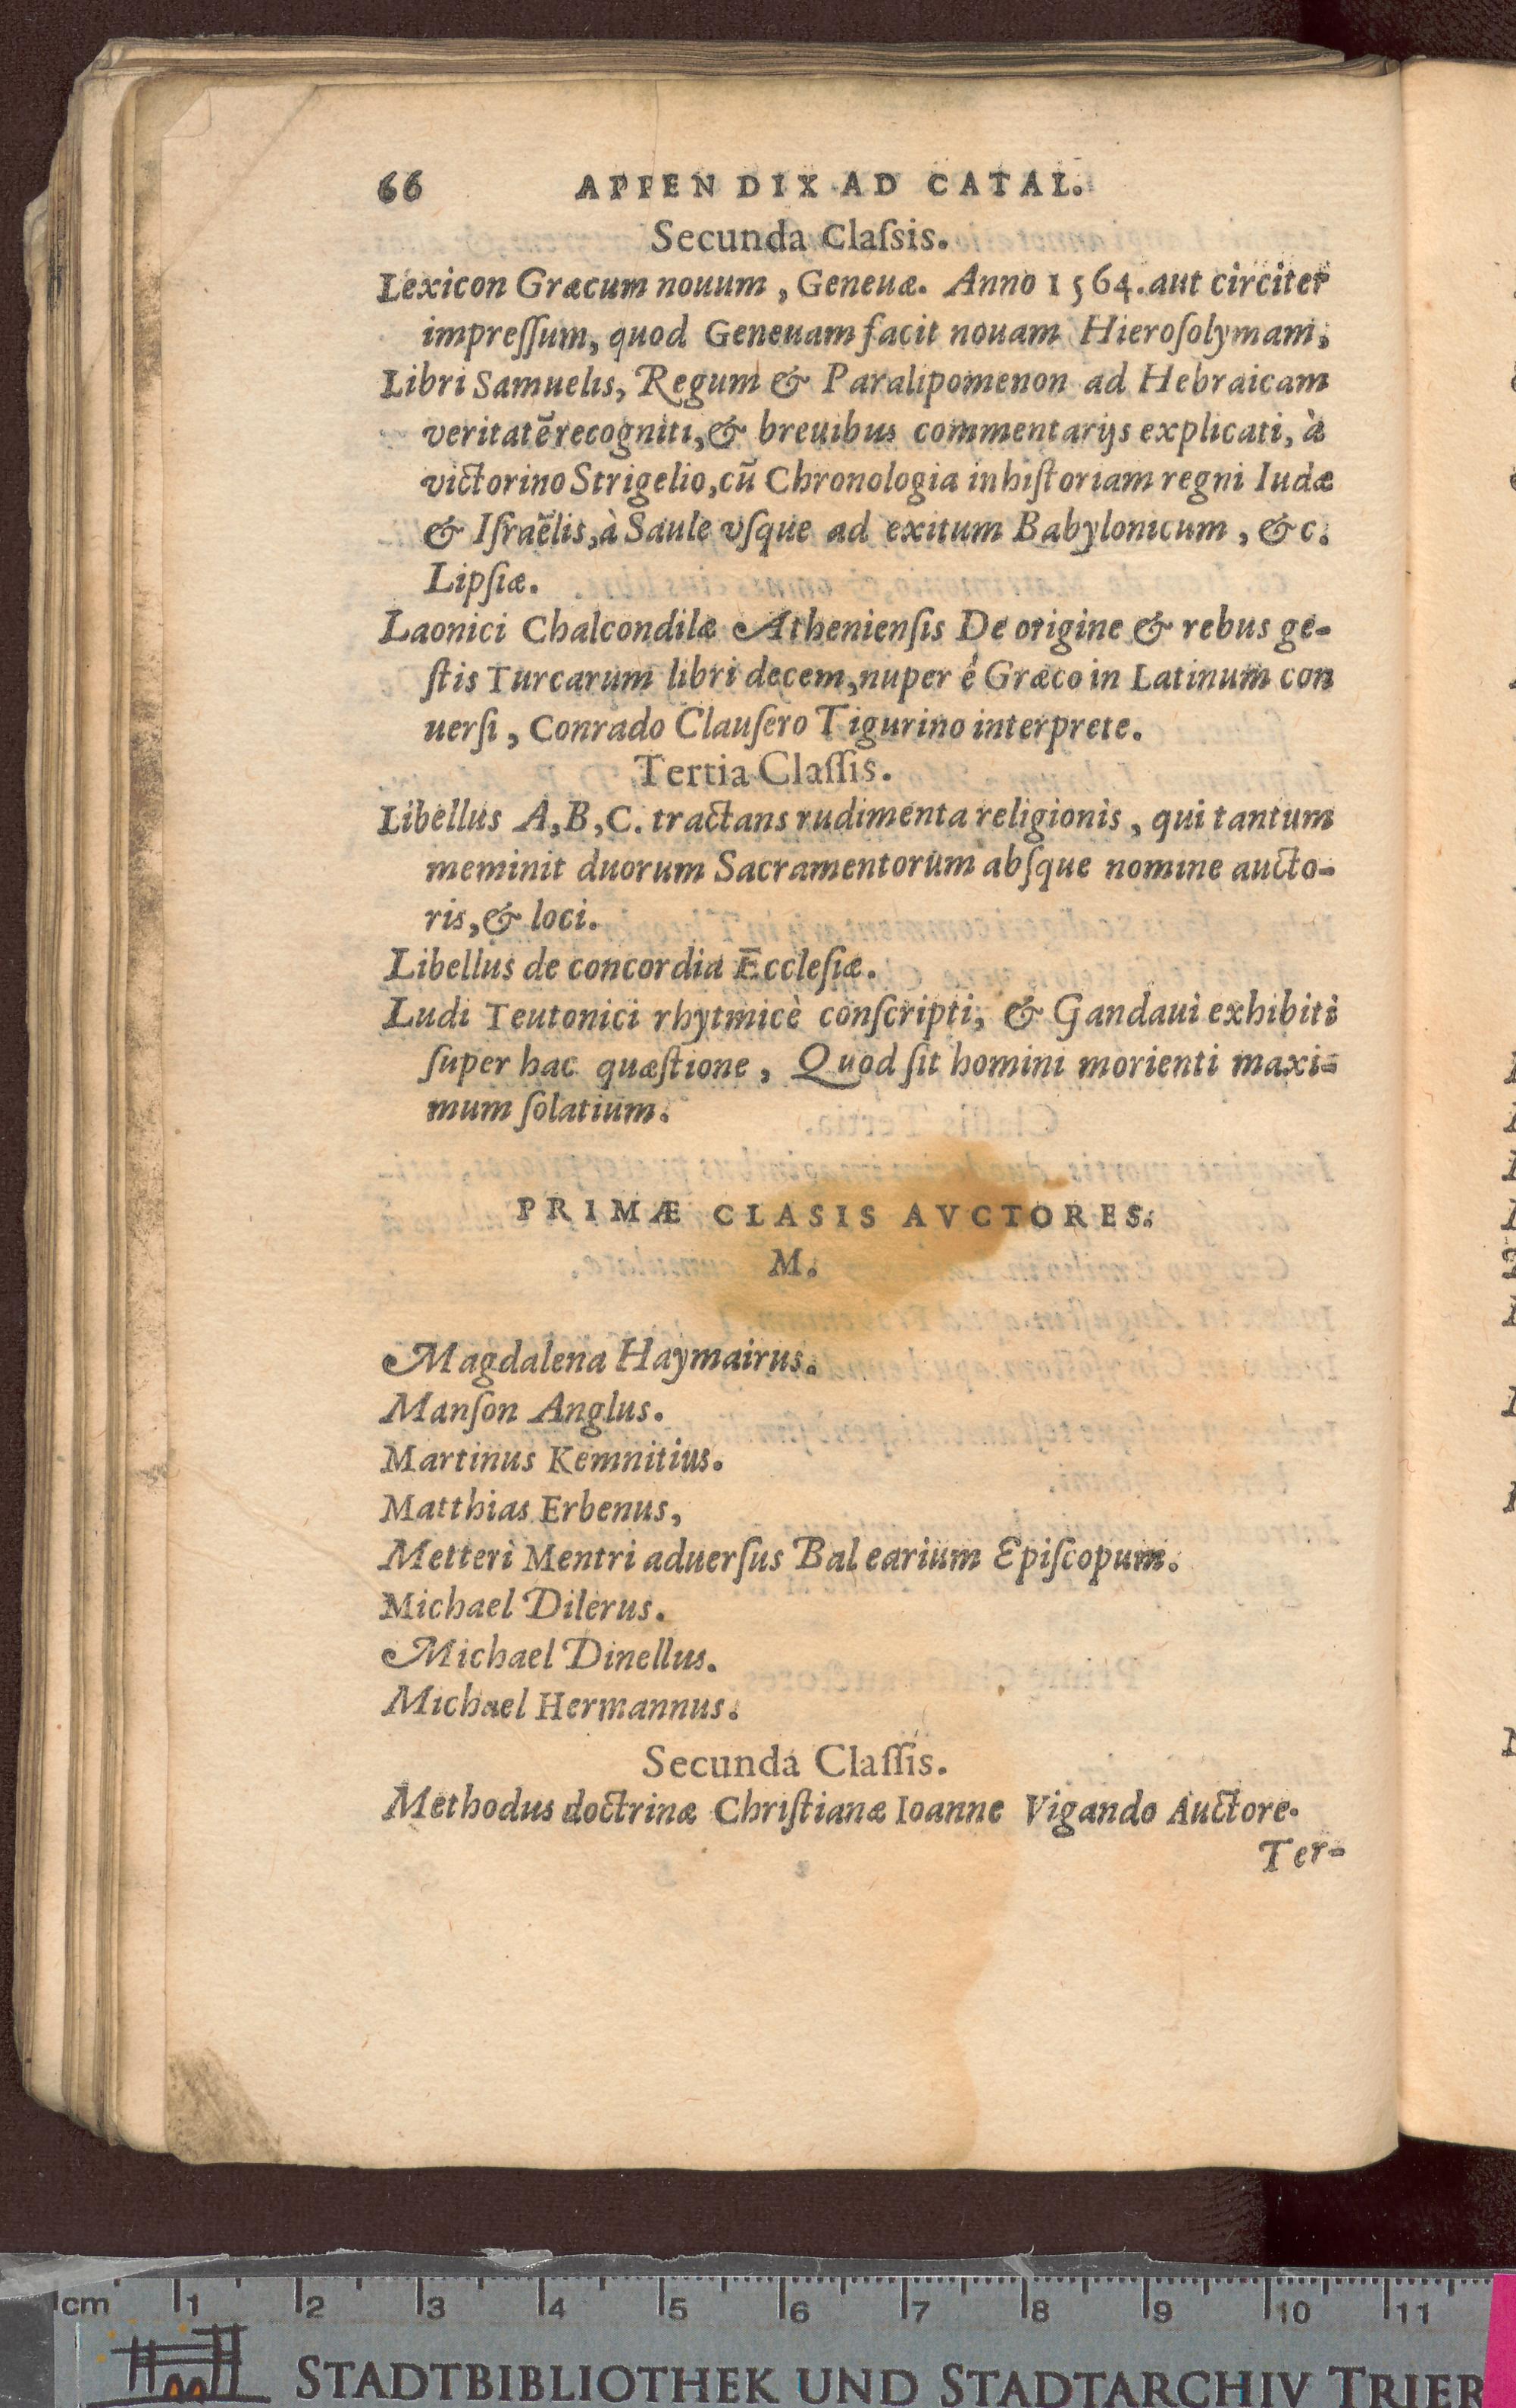 66 APPENDIX AD CATAL.
Secunda Claſsis.
Lexicon Græcum nouum, Geneuæ. Anno 1564. aut circiter
impreſſum, quod Geneuam facit nouam Hieroſolymam.
Libri Samuelis, Regum & Paralipomenon ad Hebraicam
veritatē recogniti, & breuibus commentarijs explicati, à
victorino Strigelio, cū Chronologia in hiſtoriam regni Iudæ
& Iſraëlis, à Saule vſque ad exitum Babylonicum, &c.
Lipſiæ.
Laonici Chalcondilæ Athenienſis De origine & rebus ge-
ſtis Turcarum libri decem, nuper é Græco in Latinum con
uerſi, Conrado Clauſero Tigurino interprete.
Tertia Claſſis.
Libellus A, B, C. tractans rudimenta religionis, qui tantum
meminit duorum Sacramentorum abſque nomine aucto-
ris, & loci.
Libellus de concordia Eccleſiæ.
Ludi Teutonici rhytmicè conſcripti, & Gandaui exhibiti
ſuper hac quæſtione, Quod ſit homini morienti maxi-
mum ſolatium.
PRIMÆ CLASIS AVCTORES.
M.
Magdalena Haymairus.
Manſon Anglus.
Martinus Kemnitius.
Matthias Erbenus,
Metteri Mentri aduerſus Balearium Epiſcopum.
Michael Dilerus.
Michael Dinellus.
Michael Hermannus.
Secunda Claſſis.
Methodus doctrinæ Chriſtianæ Ioanne Vigando Auctore.
Ter-
cm 1 2 3 4 5 6 7 8 9 10 11
STADTBIBLIOTHEK UND STADTARCHIV TRIER